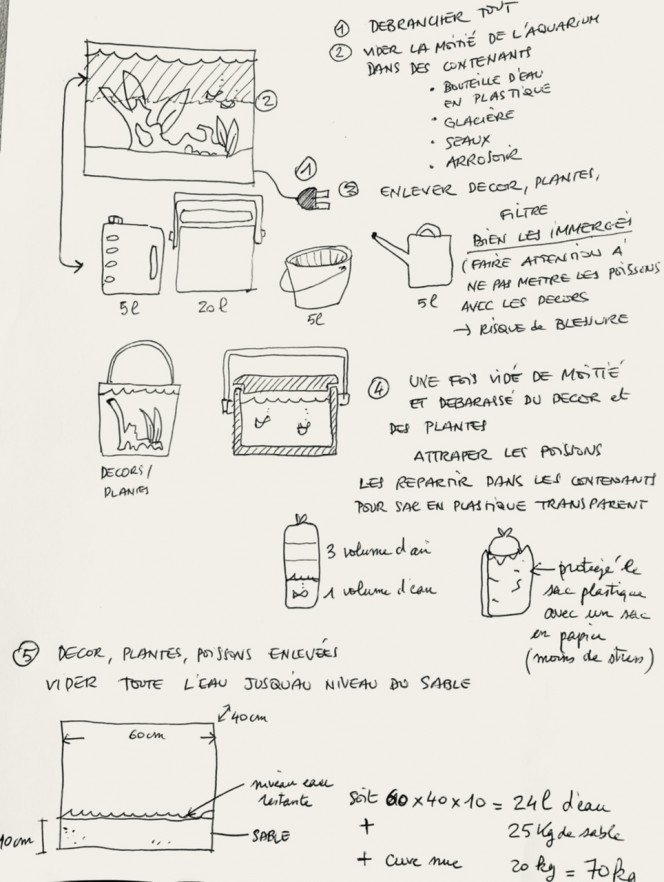 ① DEBRANCHER TOUT
② VIDER LA MOITIÉ DE L'AQUARIUM
DANS DES CONTENANTS
• BOUTEILLE D'EAU
EN PLASTIQUE
• GLACIÈRE
• SEAUX
• ARROSOIR
②
①
③ ENLEVER DECOR, PLANTES,
FILTRE
BIEN LES IMMERGÉS
(FAIRE ATTENTION À
NE PAS METTRE LES POISSONS
AVEC LES DECORS
→ RISQUE de BLESSURE
5l
20l
5l
5l
DECORS/
PLANTES
④ UNE FOIS VIDÉ DE MOITIÉ
ET DEBARASSÉ DU DECOR et
DES PLANTES
ATTRAPER LES POISSONS
LES REPARTIR DANS LES CONTENANTS
POUR SAC EN PLASTIQUE TRANSPARENT
3 volume d'air
1 volume d'eau
protégé le
sac plastique
avec un sac
en papier
(moins de stress)
⑤ DECOR, PLANTES, POISSONS ENLEVÉES
VIDER TOUTE L'EAU JUSQU'AU NIVEAU DU SABLE
40cm
60cm
niveau eau
restante
SABLE
10cm
Soit 60 x 40 x 10 = 24l d'eau
+ 25 Kg de sable
+ cuve nue 20 kg = 70kg